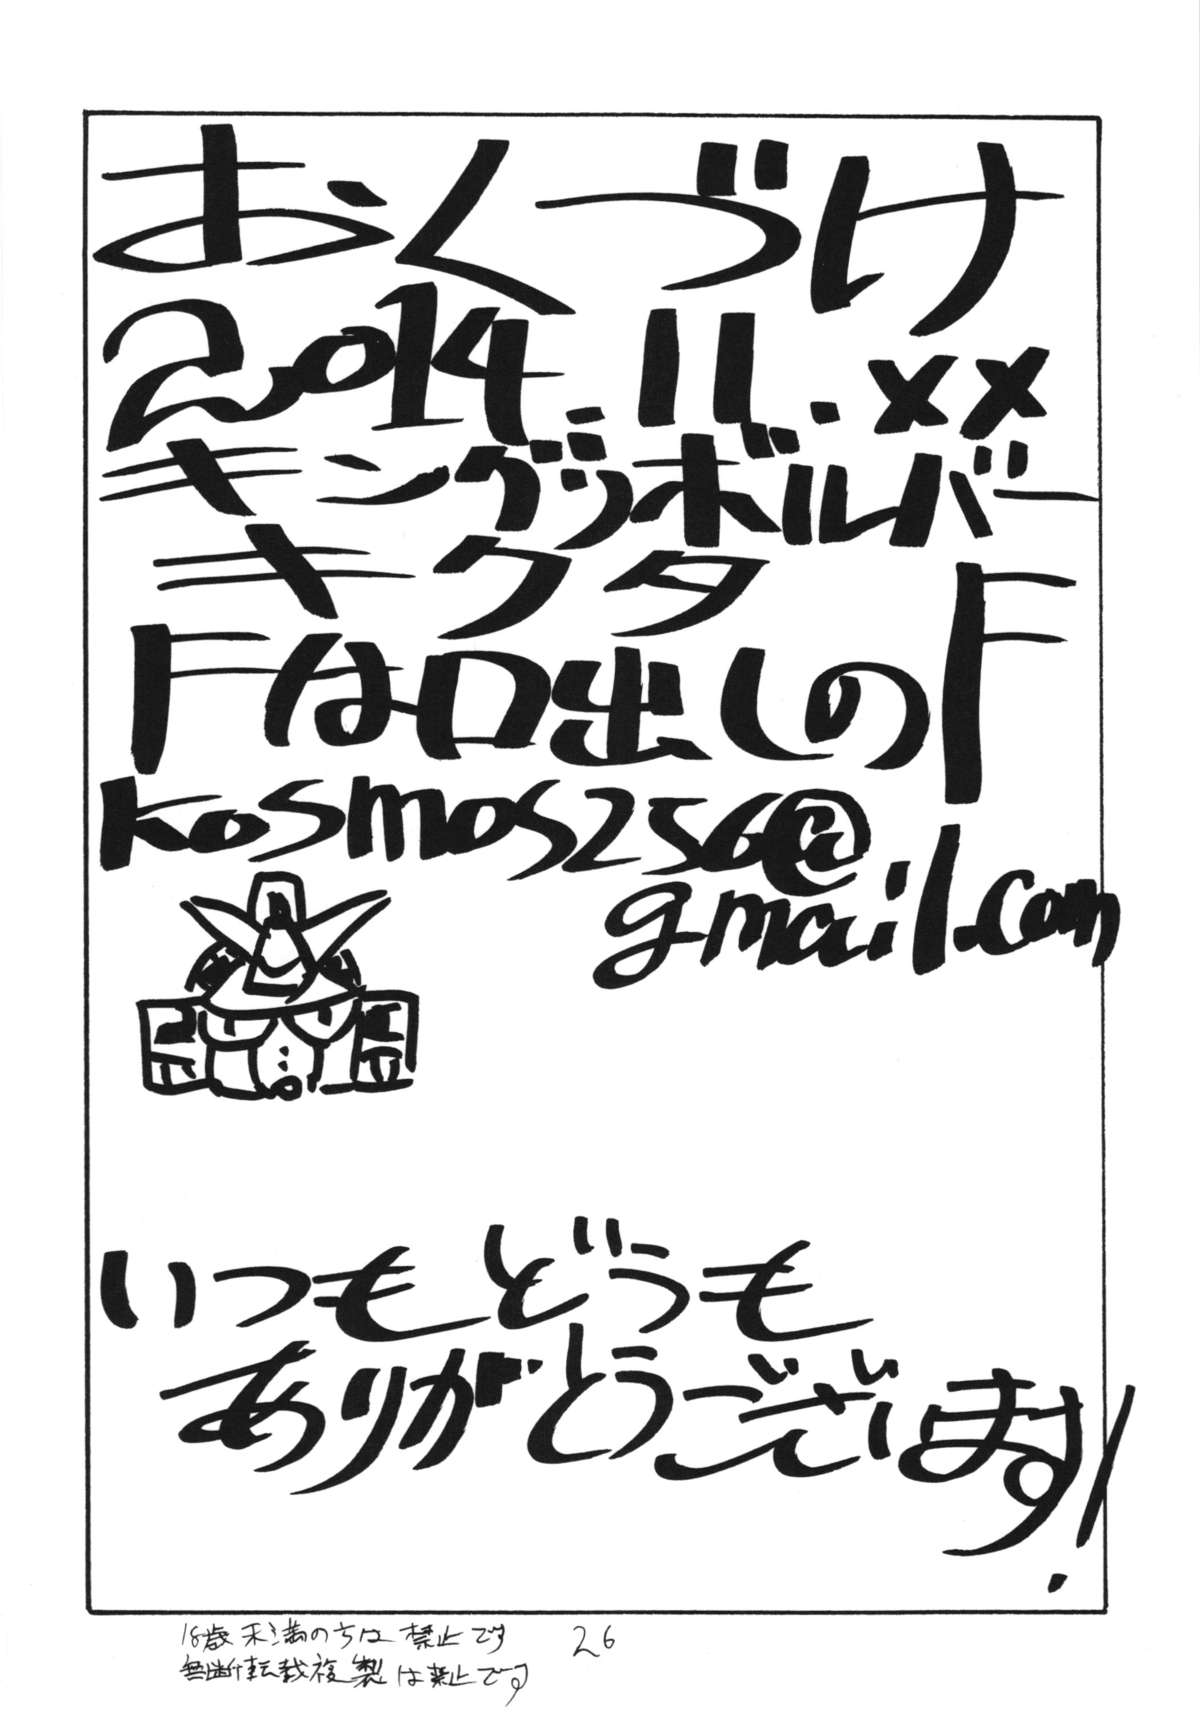 おくづけ
2014.11.××
キングリボルバー
キクタ
Fは口出しのF
kosmos256@
gmail.com
いつもどうも
ありがとうございます!
18歳未満の方は禁止です
26
無断転載複製は禁止です